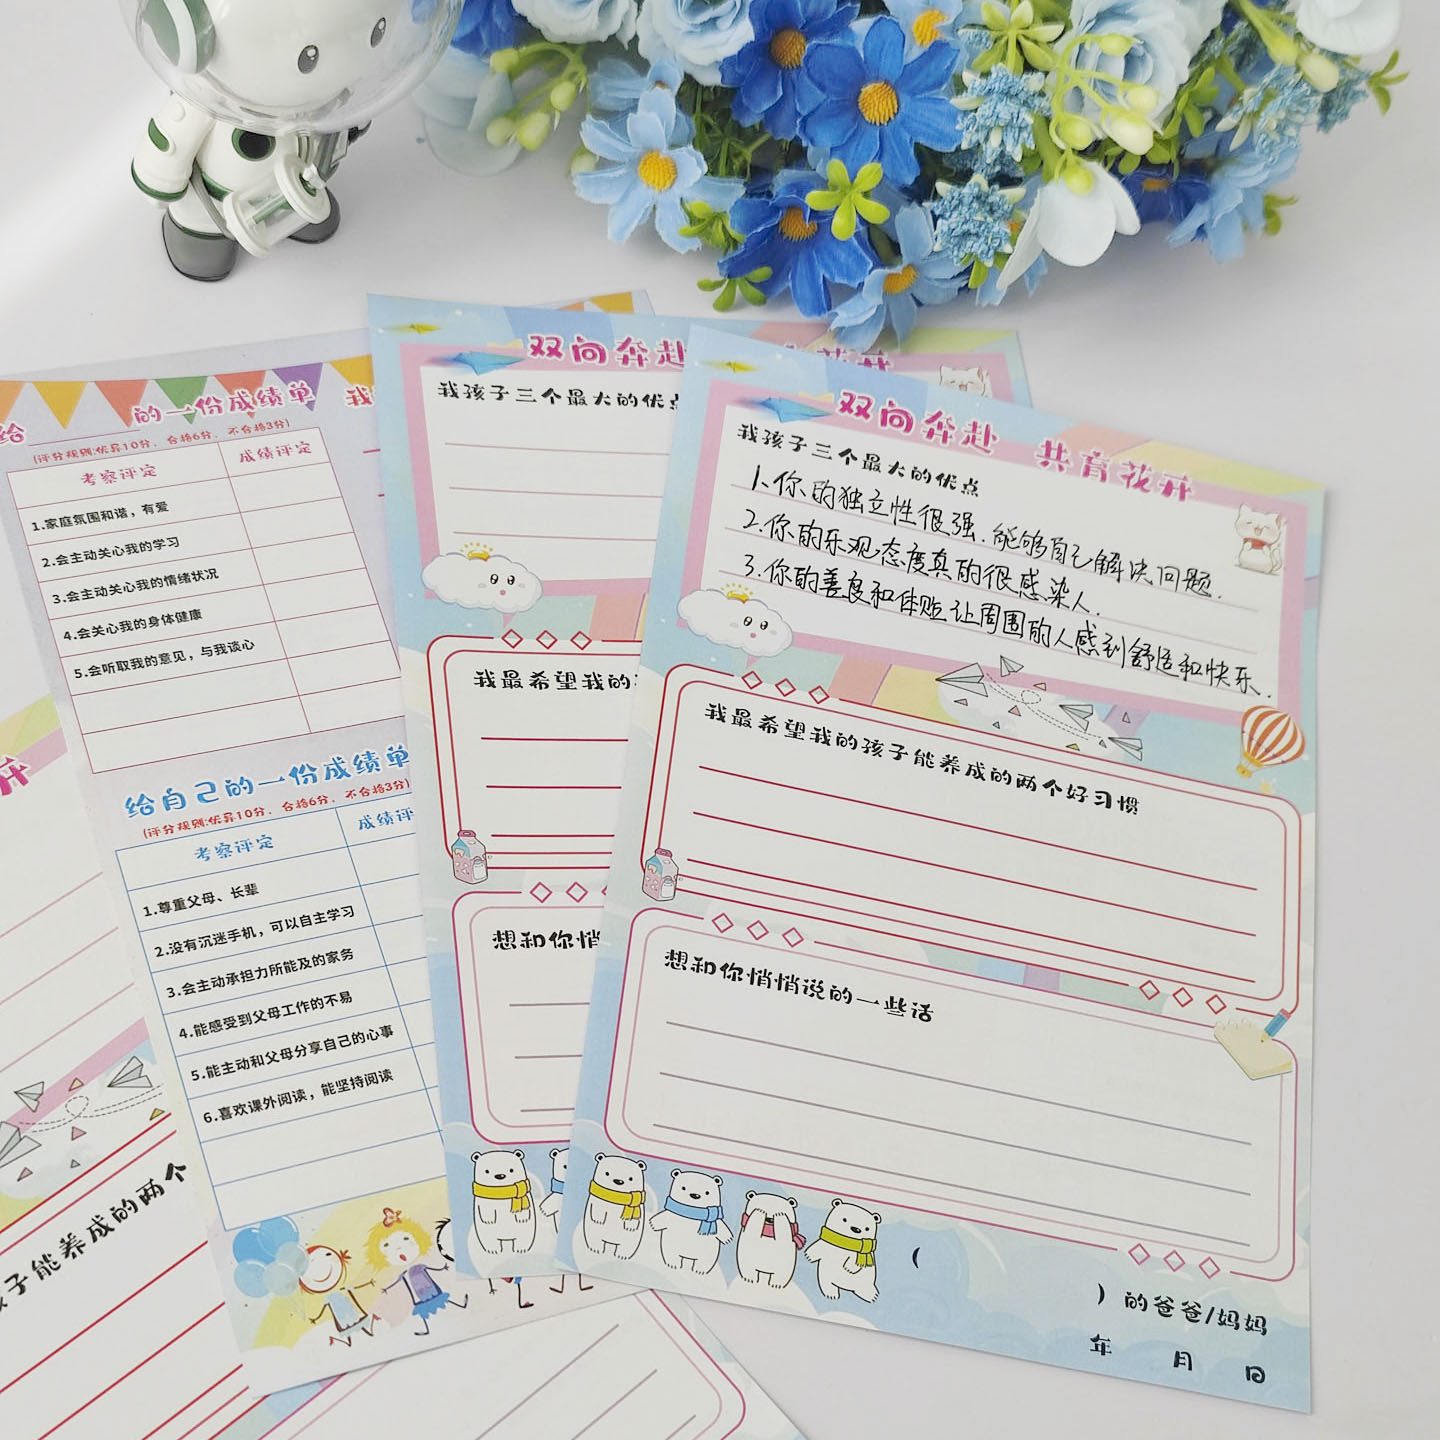 给
的一份成绩单
我
(评分规则:优异10分、合格6分、不合格3分)
考察评定
成绩评定
1.家庭氛围和谐，有爱
2.会主动关心我的学习
3.会主动关心我的情绪状况
4.会关心我的身体健康
5.会听取我的意见，与我谈心
给自己的一份成绩单
(评分规则:优异10分、合格6分、不合格3分)
考察评定
成绩评
1.尊重父母、长辈
2.没有沉迷手机，可以自主学习
3.会主动承担力所能及的家务
4.能感受到父母工作的不易
5.能主动和父母分享自己的心事
6.喜欢课外阅读，能坚持阅读
开
孩子能养成的两个
双向奔赴
花开
我孩子三个最大的优点
我最希望我的
想和你悄
双向奔赴 共育花开
我孩子三个最大的优点
1、你的独立性很强.能够自己解决问题.
2.你的乐观态度真的很感染人.
3.你的善良和体贴让周围的人感到舒适和快乐.
我最希望我的孩子能养成的两个好习惯
想和你悄悄说的一些话
( ) 的爸爸/妈妈
年 月 日